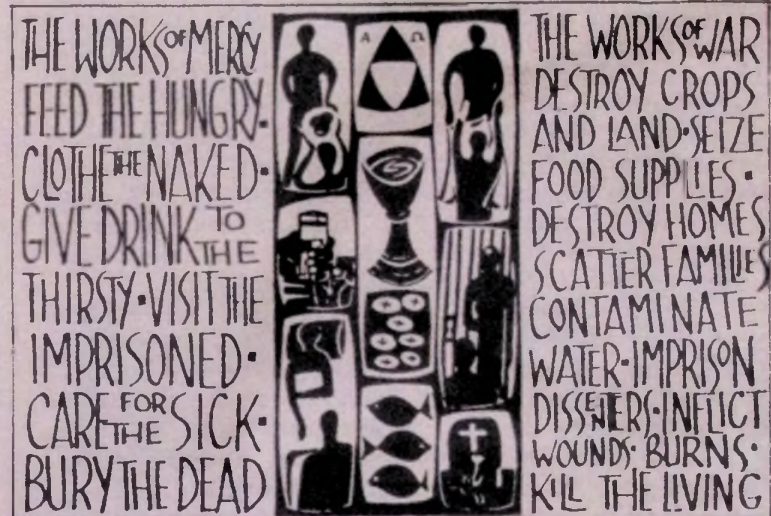 THE WORKS OF MERCY
FEED THE HUNGRY·
CLOTHE THE NAKED·
GIVE DRINK TO
THE
THIRSTY·VISIT THE
IMPRISONED·
CARE FOR
THE SICK·
BURY THE DEAD
Α Ω
THE WORKS OF WAR
DESTROY CROPS
AND LAND·SEIZE
FOOD SUPPLIES·
DESTROY HOMES
SCATTER FAMILIES
CONTAMINATE
WATER·IMPRISON
DISSENTERS·INFLICT
WOUNDS·BURNS·
KILL THE LIVING